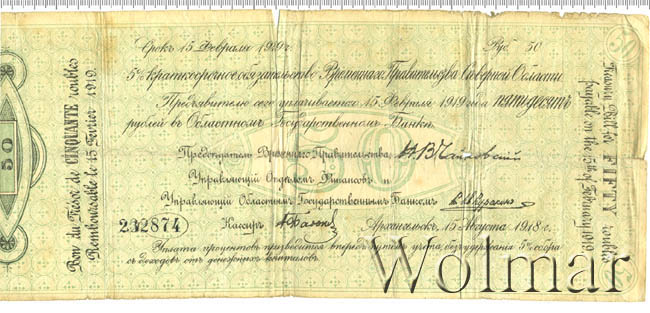 Срокъ 15 Февраля 1919 г. Руб. 50
5% краткосрочное обязательство Временнаго Правительства Северной Области
Предъявителю сего уплачивается 15 Февраля 1919 года пятьдесятъ
рублей въ Областномъ Государственномъ Банкѣ.
Предсѣдатель Временнаго Правительства Н. В. Чайковскій
Управляющій Отделомъ Финансовъ и
Управляющій Областнымъ Государственнымъ Банкомъ
232874 Кассиръ
Архангельскъ, 15 Августа 1918 г.
Уплата процентовъ производится впередъ путемъ учета, безъ удержанія 5% сбора
съ доходовъ отъ денежныхъ капиталовъ.
Bon du Trésor de CINQUANTE roubles
Remboursable le 15 Février 1919.
Treasury Bill for FIFTY roubles
payable on the 15th of February 1919
50
50
50
Wolmar